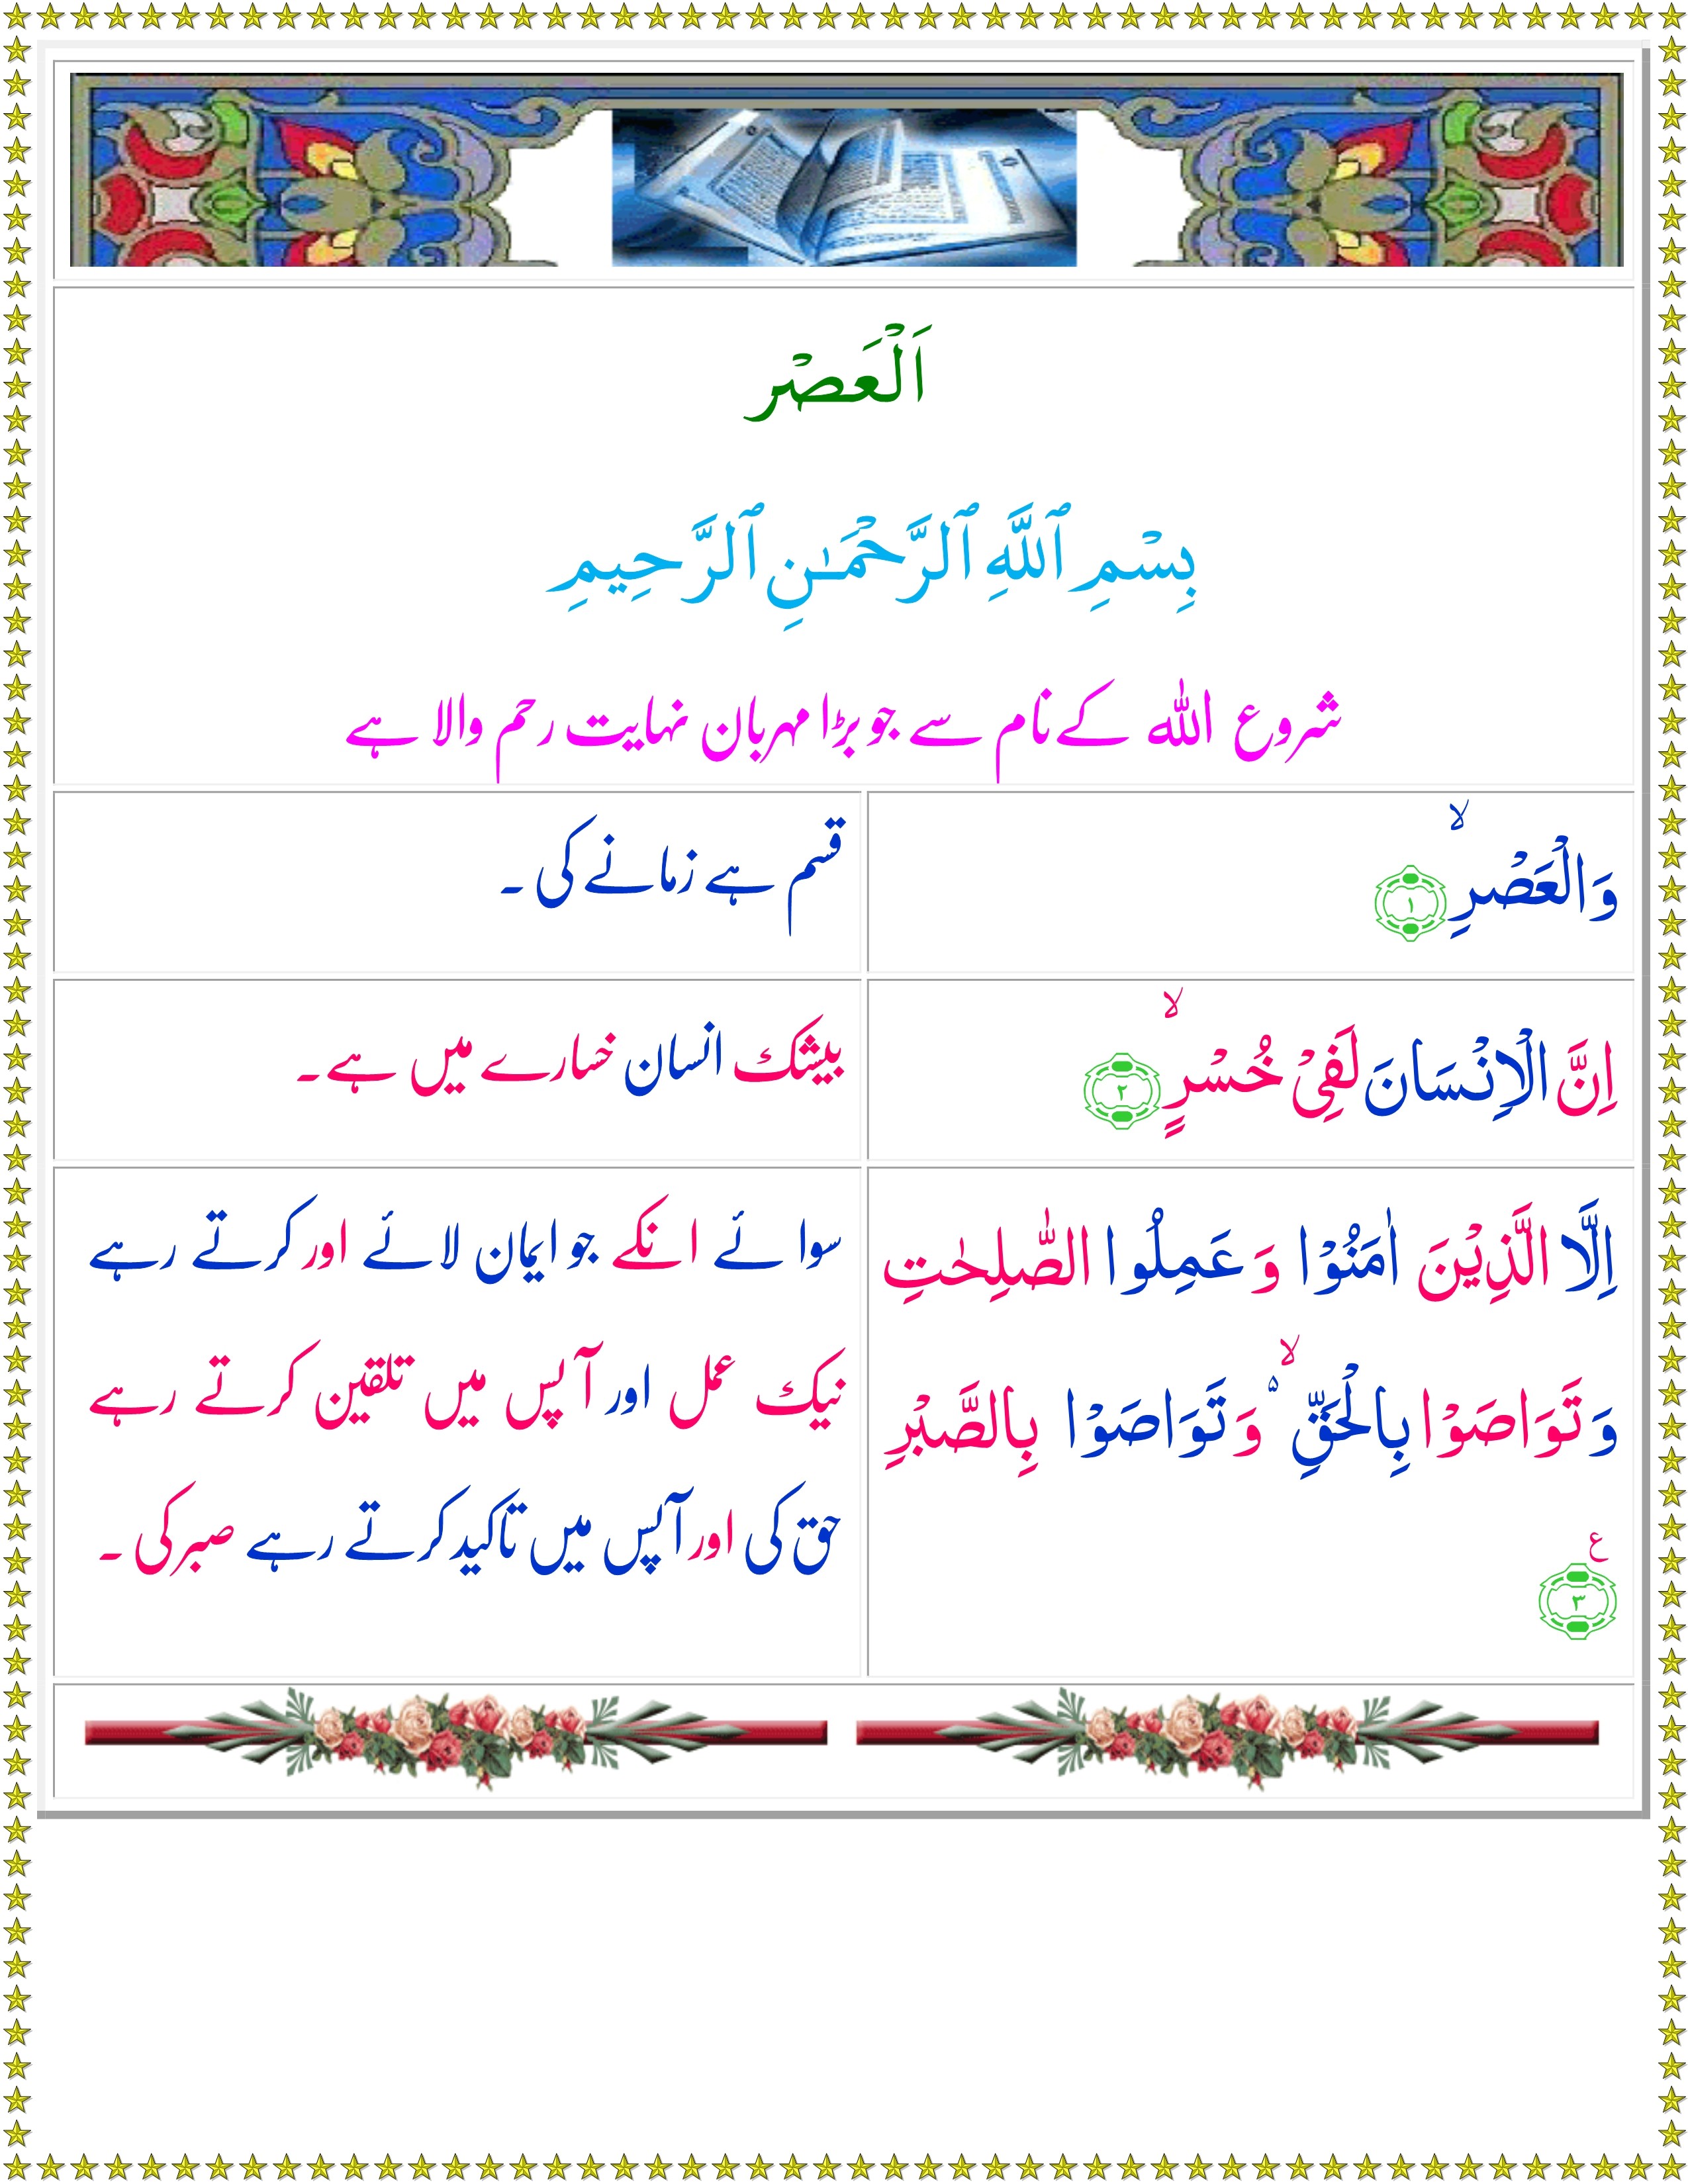 اَلْعَصْر
بِسْمِ ٱللَّهِ ٱلرَّحْمَـٰنِ ٱلرَّحِيمِ
شروع اللہ کے نام سے جو بڑا مہربان نہایت رحم والا ہے
وَالْعَصْرِ ۙ ۱
قسم ہے زمانے کی ۔
اِنَّ الْاِنْسَانَ لَفِیْ خُسْرٍ ۙ ۲
بیشک انسان خسارے میں ہے ۔
اِلَّا الَّذِیْنَ اٰمَنُوْا وَ عَمِلُوا الصّٰلِحٰتِ
وَ تَوَاصَوْا بِالْحَقِّ ۙ۬ وَ تَوَاصَوْا بِالصَّبْرِ
ع ۳
سوائے انکے جو ایمان لائے اور کرتے رہے
نیک عمل اور آپس میں تلقین کرتے رہے
حق کی اور آپس میں تاکید کرتے رہے صبر کی ۔